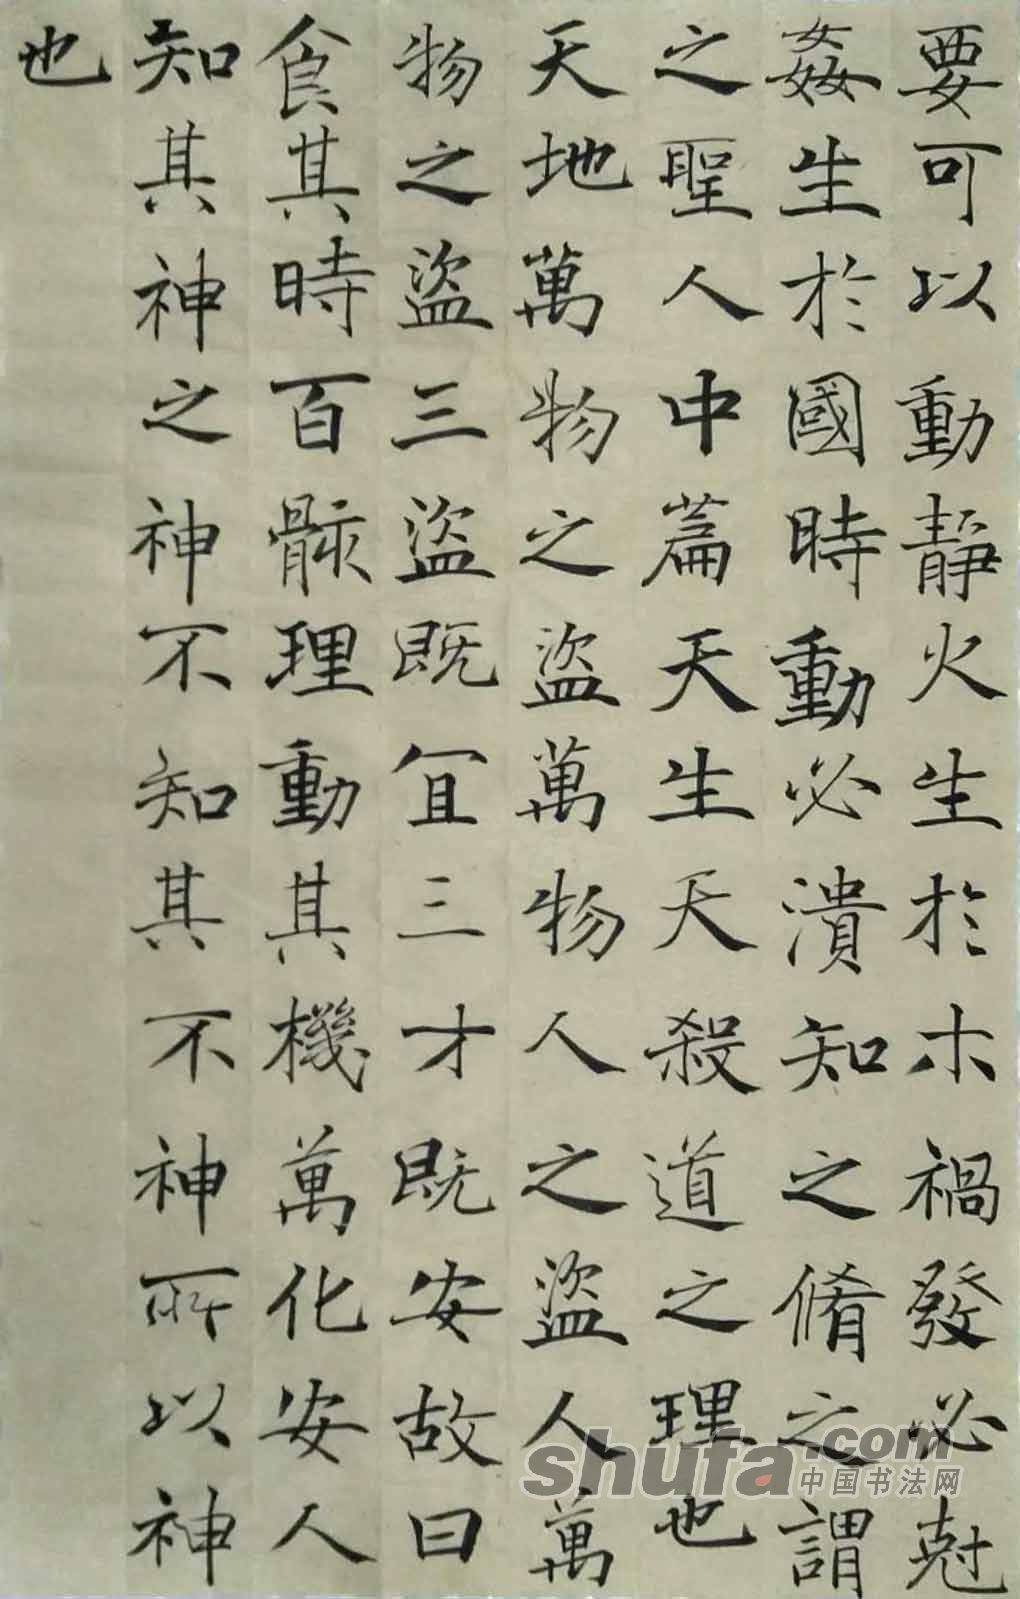 要可以動靜火生於木禍發必尅
姦生於國時動必潰知之脩之謂
之聖人中篇天生天殺道之理也
天地萬物之盜萬物人之盜人萬
物之盜三盜既冝三才既安故曰
食其時百骸理動其機萬化安人
知其神之神不知其不神所以神
也
shufa.com
中国书法网